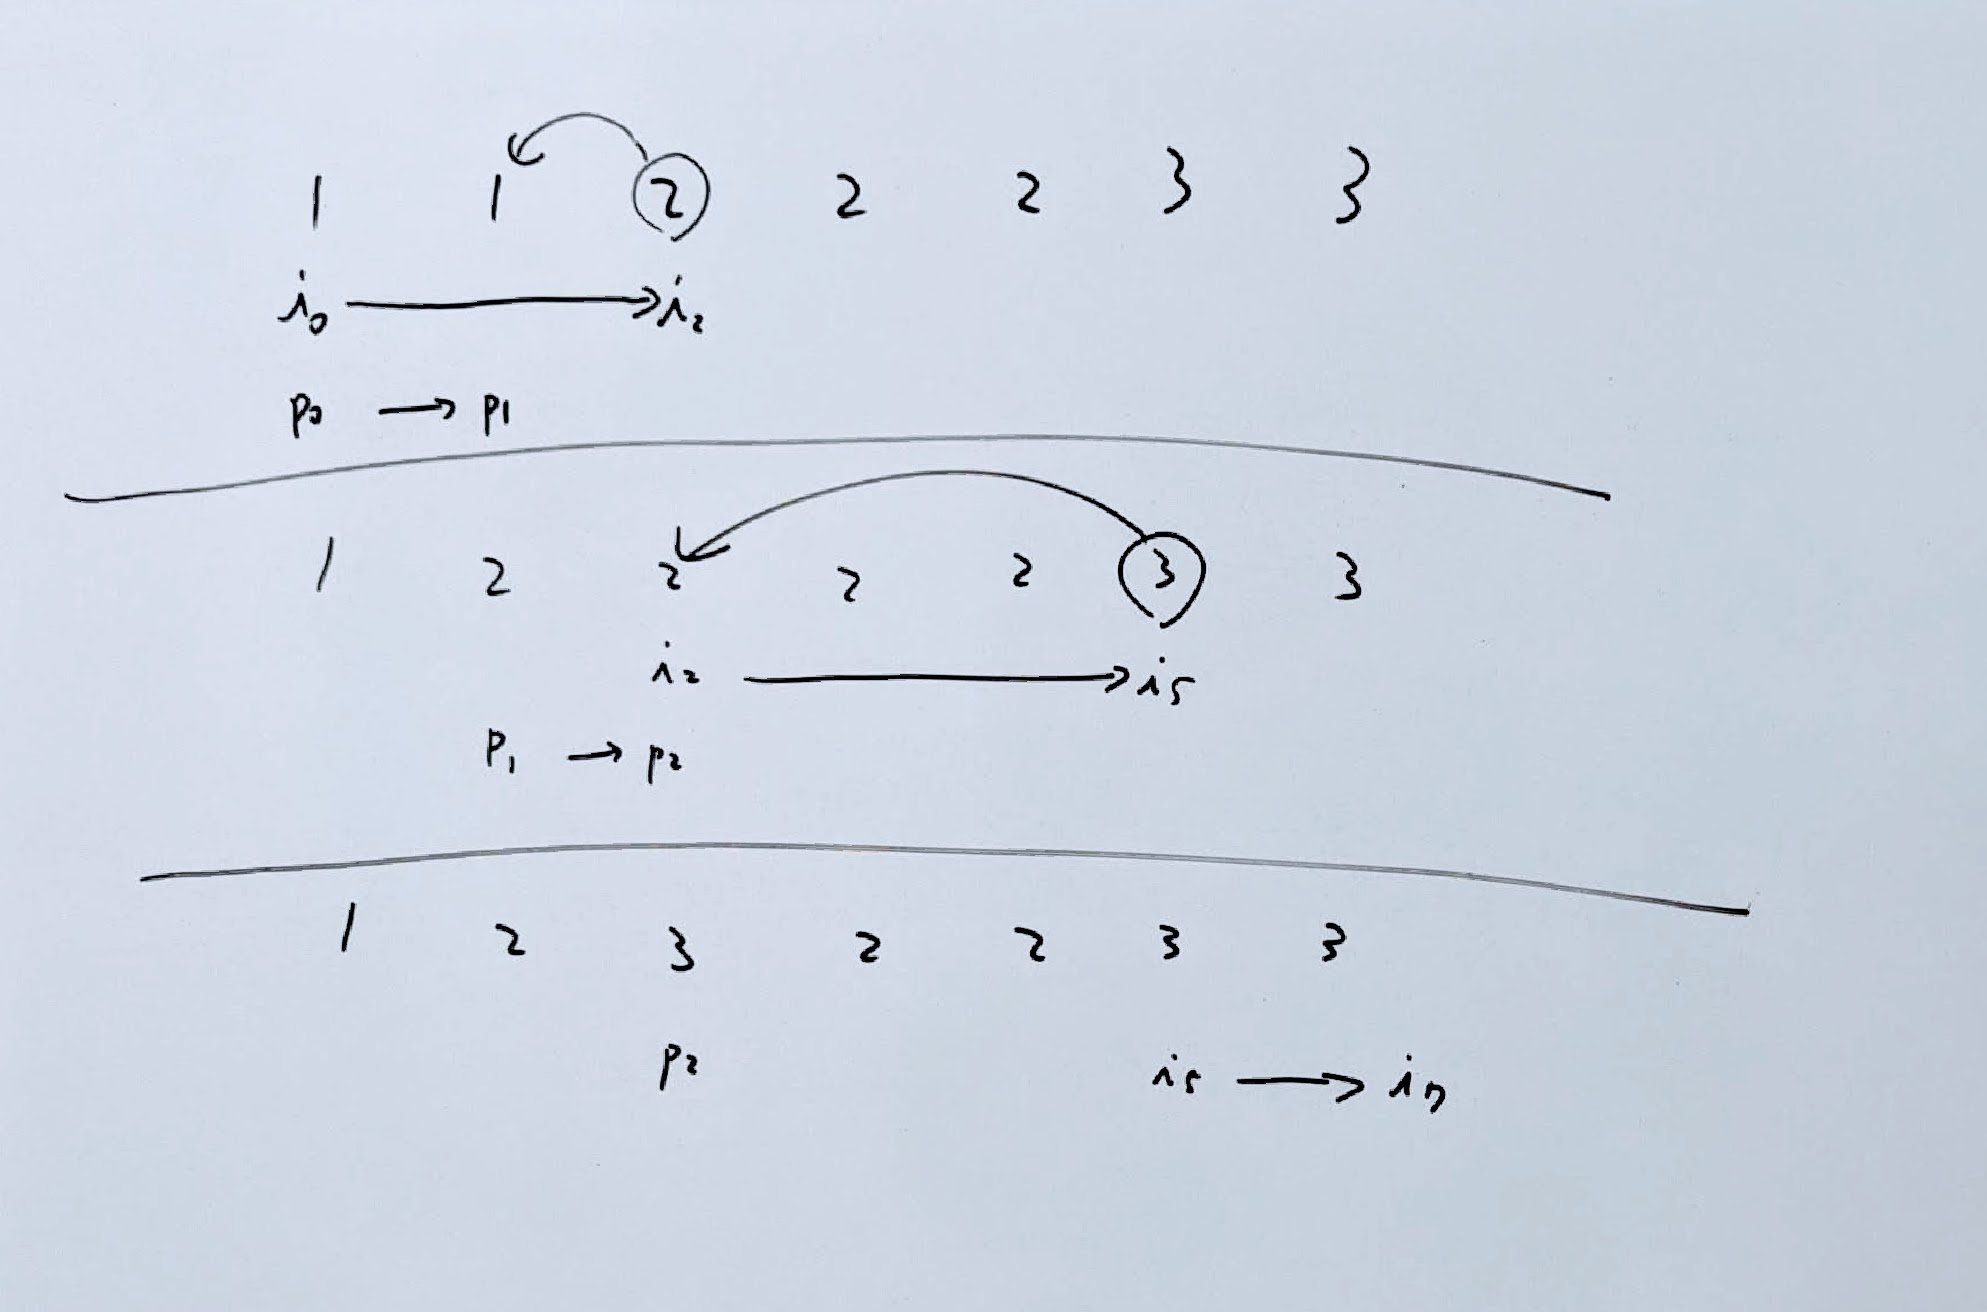 1 1 2 2 2 3 3
i0 → i2
p0 → p1
1 2 2 2 2 3 3
i2 → i5
p1 → p2
1 2 3 2 2 3 3
p2 i5 → i7